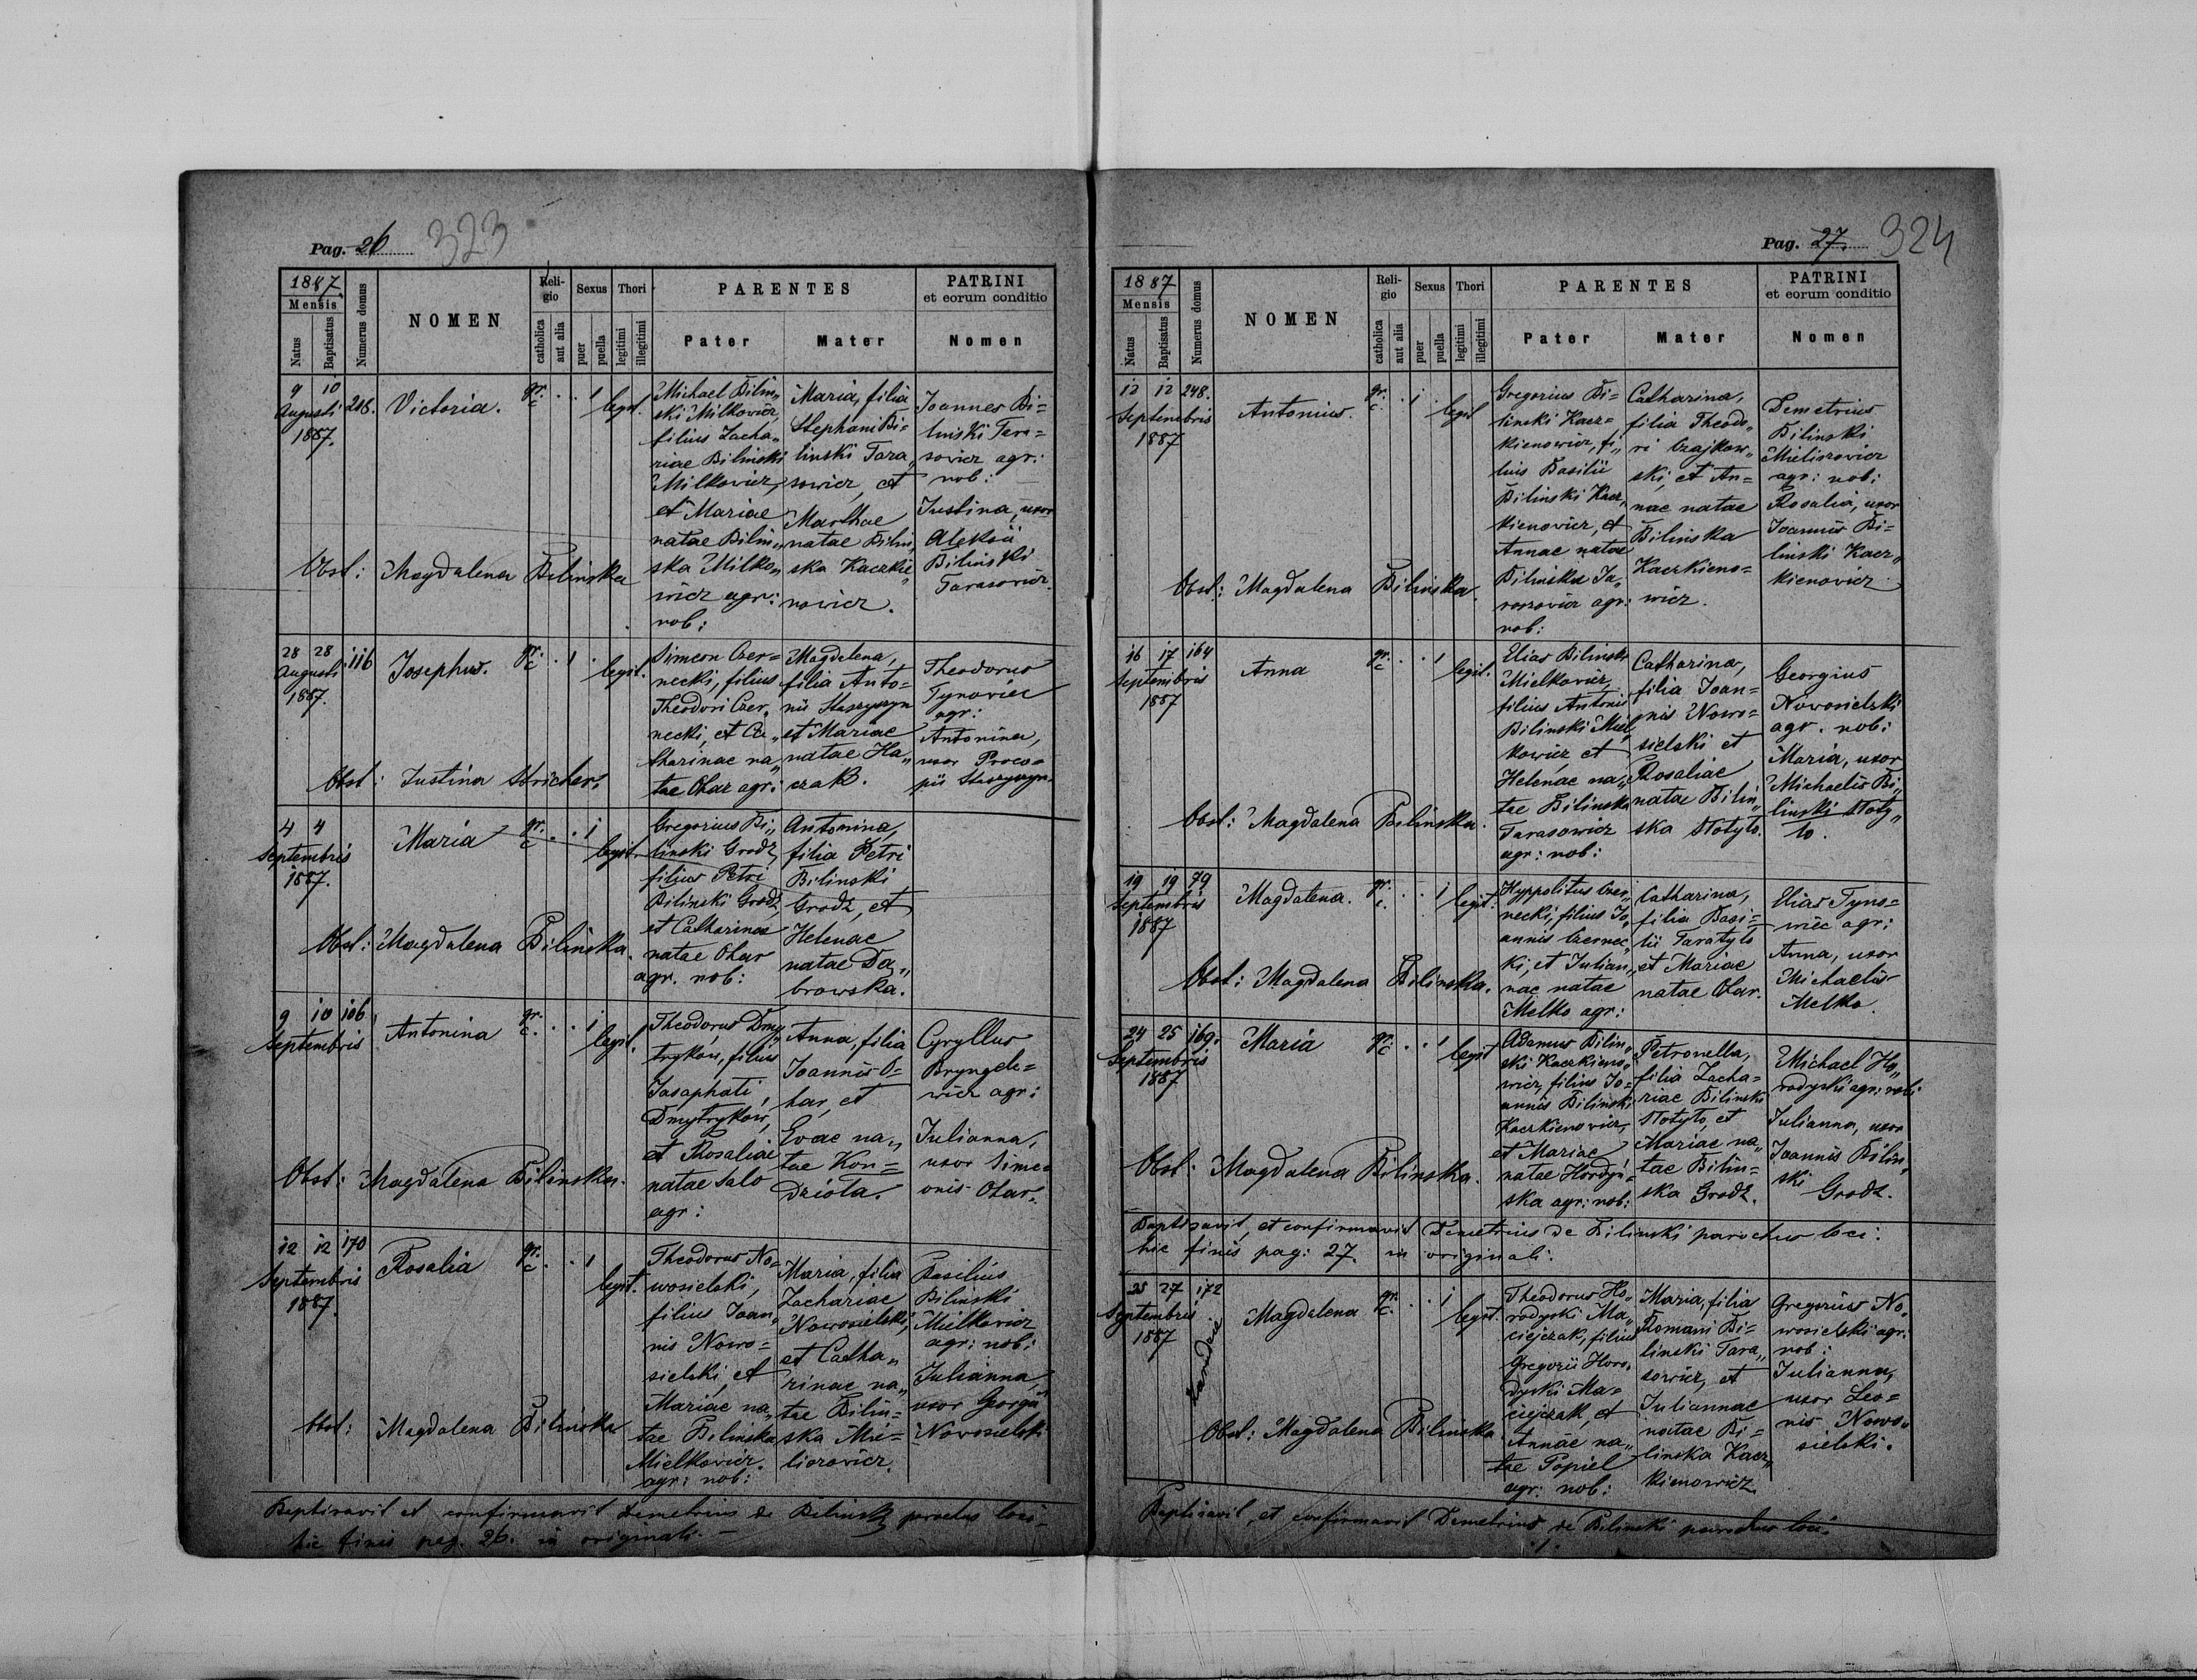 Pag. 26 323
1887.
Mensis
Natus
Baptisatus
Numerus domus
NOMEN
Religio
catholica
aut alia
Sexus
puer
puella
Thori
legitimi
illegitimi
PARENTES
Pater
Mater
PATRINI
et eorum conditio
Nomen
9 10 216.
Augusti
1887.
Victoria.
gr. c. . . 1 legit.
Michael Bilin„
ski Milkowicz,
filius Zacha„
riae Bilinski
Milkowicz,
et Mariae
natae Bilin„
ska Milko„
wicz agr:
nob:
Maria, filia
Stephani Bi=
linski Tara„
sowicz, et
Marthae
natae Bilin„
ska Kaczkie„
nowicz.
Joannes Bi=
linski Tara=
sowicz agr:
nob:
Justina, uxor
Aleksii
Bilinski
Tarasowicz.
Obst: Magdalena Bilinska
28 28 116
Augusti
1887.
Josephus.
gr. c . 1 . legit.
Simeon Czer=
necki, filius
Theodori Czer„
necki, et Ca„
tharinae na„
tae Ohar agr:
Magdalena,
filia Anto=
nii Staszyszyn
et Mariae
natae Ha„
czak.
Theodorus
Tynowiec
agr:
Antonina,
uxor Proco=
pii Staszyszyn.
Obst: Justina Stricher.
4 4
Septembris
1887.
Maria
gr. c . . 1 legit.
Gregorius Bi„
linski Grodz,
filius Petri
Bilinski Grodz,
et Catharinae
natae Ohar
agr. nob:
Antonina,
filia Petri
Bilinski
Grodz, et
Helenae
natae Da„
browska.
Obst: Magdalena Bilinska.
9 10 106
Septembris
Antonina
gr. c. . . 1 legit.
Theodorus Dmy„
trykow, filius
Josaphati
Dmytrykow,
et Rosaliae
natae Salo
agr:
Anna, filia
Joannis O=
har, et
Evae na„
tae Kon=
dziola.
Cyryllus
Bryngele=
wicz agr:
Julianna,
uxor Sime=
onis Ohar.
Obst: Magdalena Bilinska.
12 12 170
Septembris
1887.
Rosalia
gr. c . . 1 legit.
Theodorus No=
wosielski,
filius Joan„
nis Nowo=
sielski, et
Mariae na„
tae Bilinska
Mielkowicz.
agr: nob:
Maria, filia
Zachariae
Nowosielski,
et Catha„
rinae na„
tae Bilin=
ska Mie=
liszowicz.
Basilius
Bilinski
Mielkowicz
agr: nob:
Julianna,
uxor Georgii
Nowosielski
Obst: Magdalena Bilinska
Baptisavit et confirmavit Demetrius de Bilinski parochus loci
hic finis pag. 26. in originali. —
Pag. 27. 324
1887
Mensis
Natus
Baptisatus
Numerus domus
NOMEN
Religio
catholica
aut alia
Sexus
puer
puella
Thori
legitimi
illegitimi
PARENTES
Pater
Mater
PATRINI
et eorum conditio
Nomen
12 12 248.
Septembris
1887
Antonius.
gr. c. . 1 . legit
Gregorius Bi=
linski Kacz=
kienowicz, fi„
lius Basilii
Bilinski Kacz„
kienowicz, et
Annae natae
Bilinska Ja„
worowicz agr:
nob:
Catharina,
filia Theodo„
ri Czajkow„
ski, et An=
nae natae
Bilinska
Kaczkieno=
wicz.
Demetrius
Bilinski
Mieliszowicz
agr: nob:
Rosalia, uxor
Joannis Bi=
linski Kacz„
kienowicz
Obst: Magdalena Bilinska.
16 17 164
Septembris
1887
Anna
gr. c. . . 1 legit.
Elias Bilinski
Mielkowicz,
filius Antonii
Bilinski Miel„
kowicz, et
Helenae na„
tae Bilinska
Tarasowicz
agr: nob:
Catharina,
filia Joan=
nis Nowo=
sielski et
Rosaliae
natae Bilin„
ska Notyto.
Georgius
Nowosielski
agr. nob:
Maria, uxor
Michaelis Bi„
linski Noty„
to.
Obst: Magdalena Bilinska.
19 19 79
Septembris
1887
Magdalena.
gr. c. . . 1 legit.
Hyppolitus Czer„
necki, filius Jo„
annis Czernec„
ki, et Julian„
nae natae
Melko agr:
Catharina,
filia Basi=
lii Taratyto
et Mariae
natae Ohar.
Elias Tyno=
wiec agr:
Anna, uxor
Michaelis
Melko.
Obst: Magdalena Bilinska.
24 25 169.
Septembris
1887
Maria
gr. c . . 1 legit
Adamus Bilin„
ski Kaczkieno=
wicz, filius Jo=
annis Bilinski
Kaczkienowicz,
et Mariae
natae Hordyn=
ska agr: nob:
Petronella,
filia Zacha=
riae Bilinski
Notyto, et
Mariae na„
tae Bilin=
ska Grodz.
Michael Ho„
rodyski agr: nob:
Julianna, uxor
Joannis Bilin„
ski
Grodz.
Obst. Magdalena Bilinska.
Baptisavit, et confirmavit Demetrius de Bilinski parochus loci:
hic finis pag: 27. in originali:
25 27 172
Septembris
1887
Magdalena
gr. c. . . 1 legit.
Theodorus Ho„
rodyski Ma„
ciejczak, filius
Gregorii Horo„
dyski Ma=
ciejczak, et
Annae na„
tae Popiel
agr: nob:
Maria, filia
Romani Bi=
linski Tara„
sowicz, et
Juliannae
natae Bi=
linska Kacz„
kienowicz.
Gregorius No„
wosielski agr:
nob:
Julianna,
uxor Leo=
nis Nowo„
sielski.
Obst: Magdalena Bilinska
Baptisavit, et confirmavit Demetrius de Bilinski parochus loci.
./.